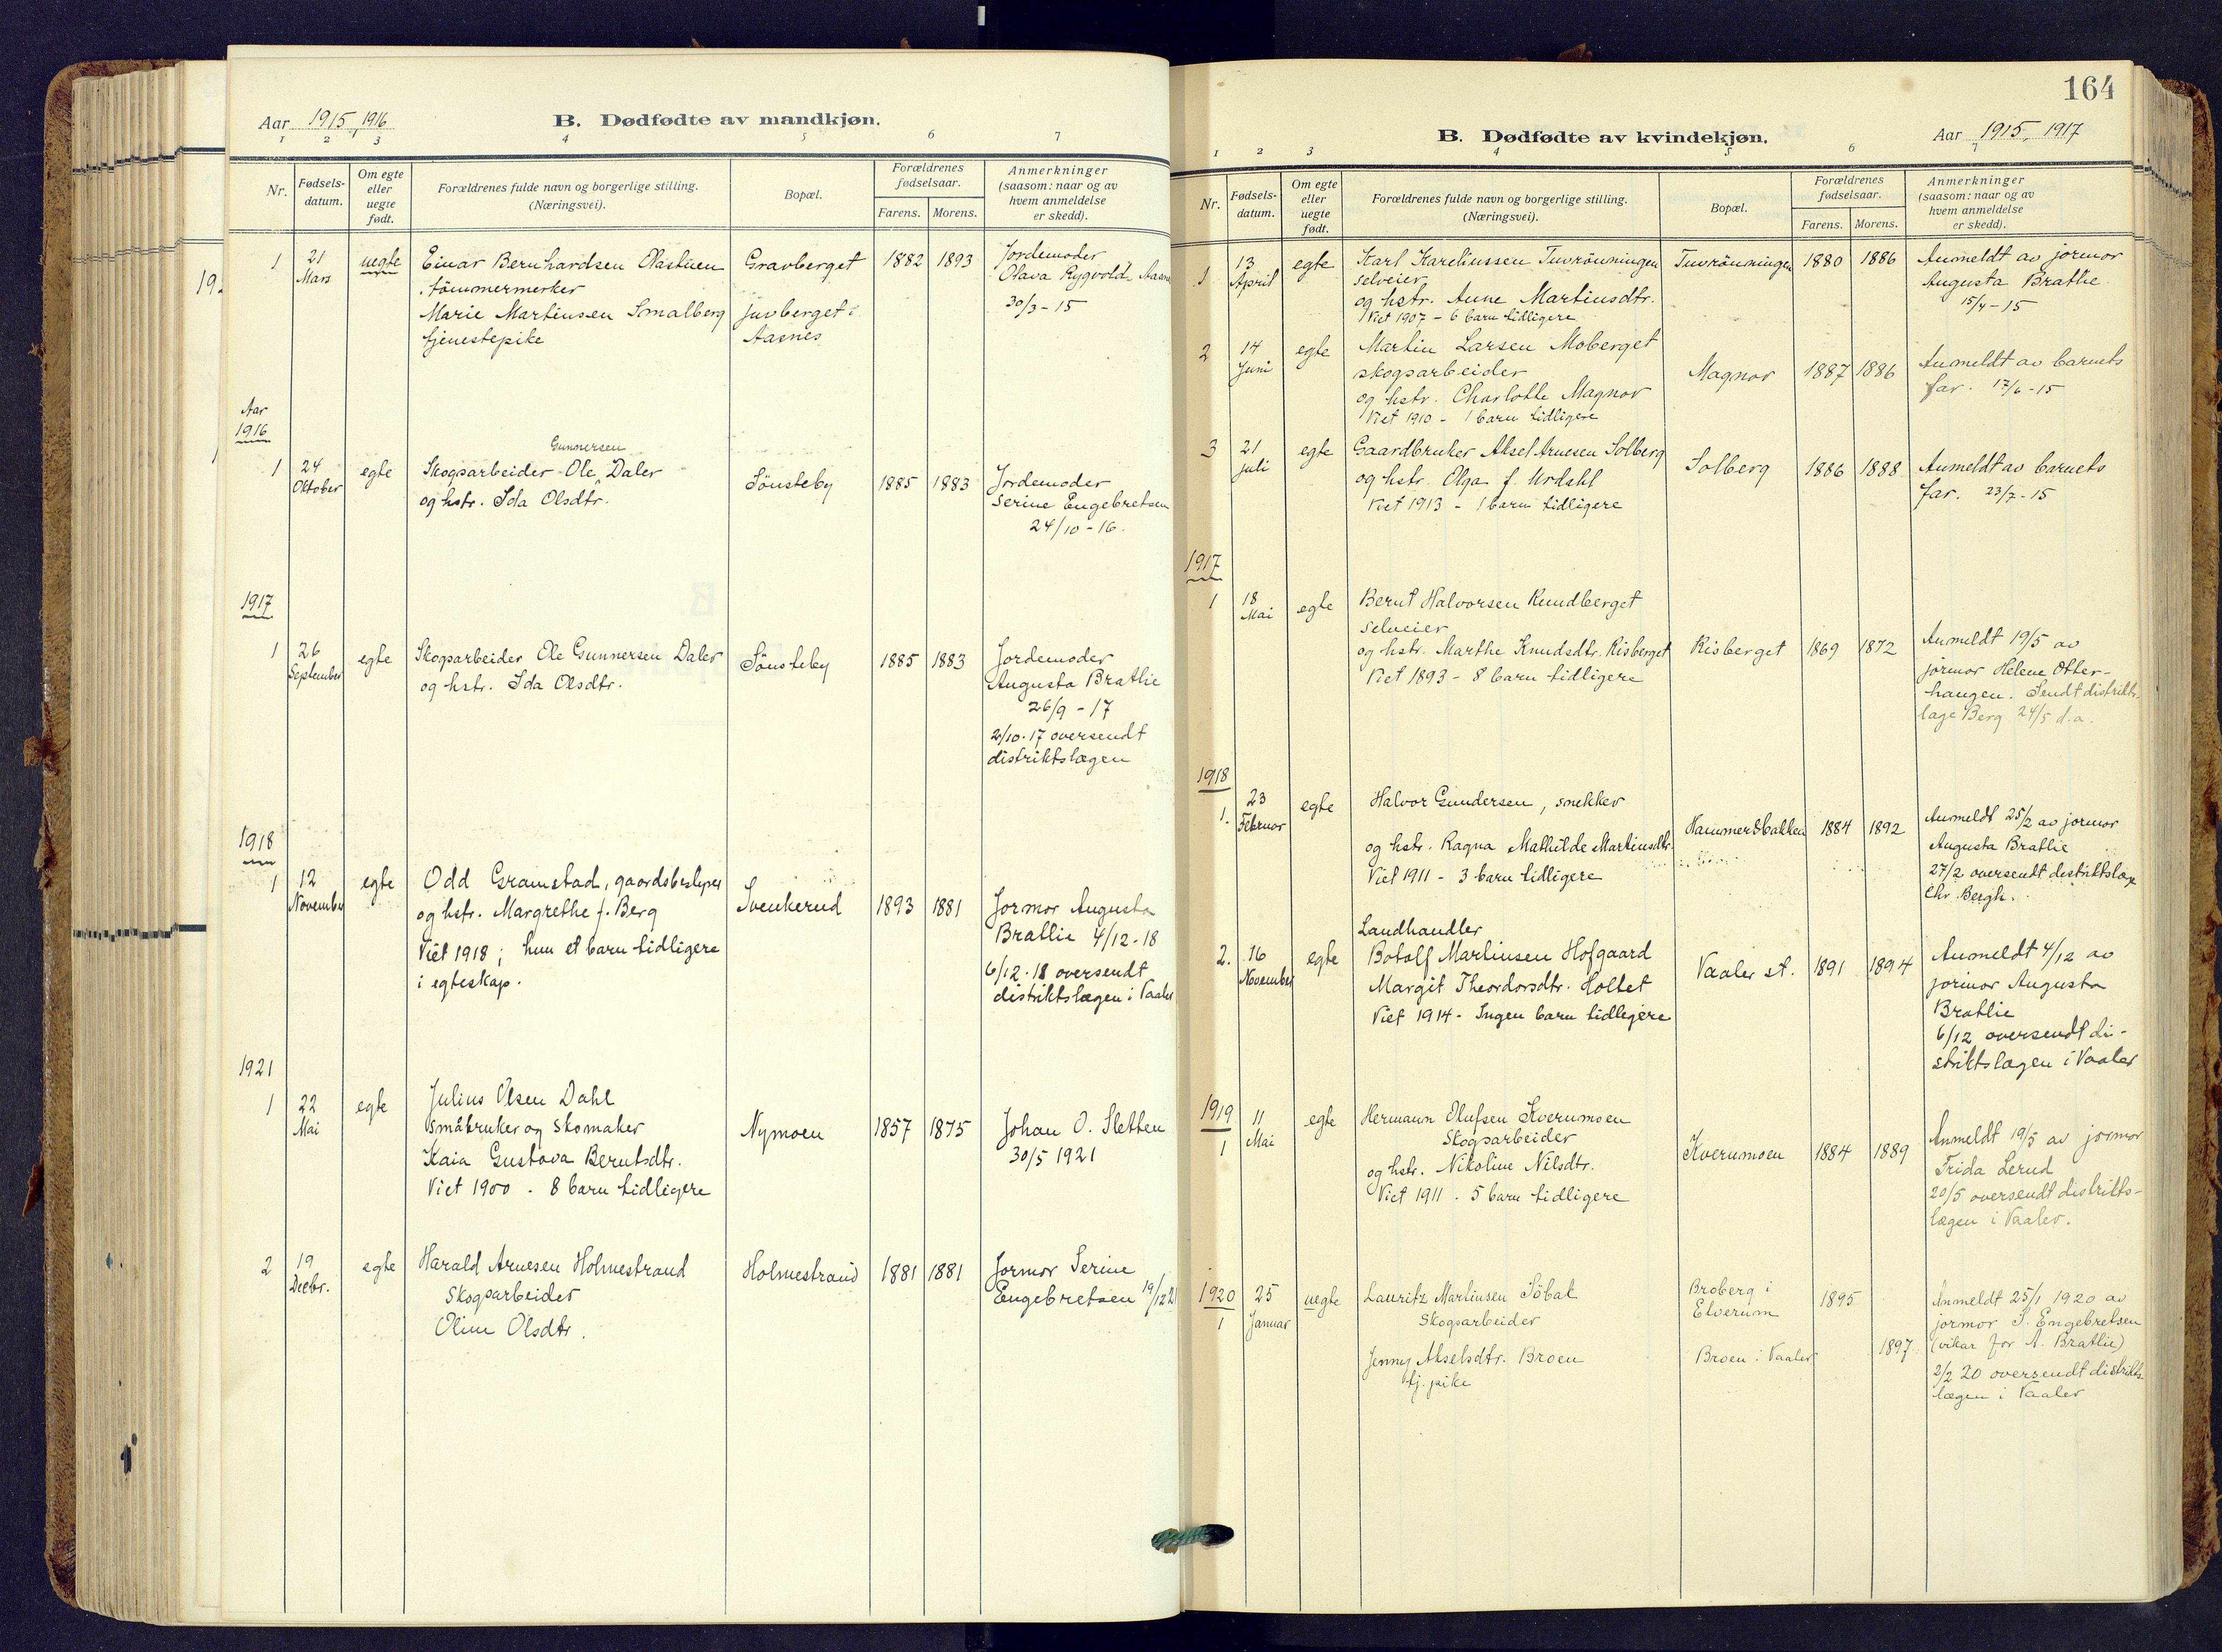 Aar 1915, 1916
B. Dødfødte av mandkjøn.
1 2 3 4 5 6 7
Nr.
Fødsels-
datum.
Om egte
eller
uegte
født.
Forældrenes fulde navn og borgerlige stilling.
(Næringsvei).
Bopæl.
Forældrenes
fødselsaar.
Farens. Morens.
Anmerkninger
(saasom: naar og av
hvem anmeldelse
er skedd).
1 21 uegte Einar Bernhardsen Olastuen Gravberget 1882 1893 Jordemoder
Mars tömmermerker Olava Rygvold. Aasnes
Marie Martinsen Smalberg Juvberget i 30/3-15
tjenestepike Aasnes
Aar
1916
Gunnersen
1 24 egte Skogsarbeider Ole Daler Sönsteby 1885 1883 Jordemoder
Oktober og hstr. Ida Olsdtr. Serine Engebretsen
24/10-16.
1917
1 26 egte Skogsarbeider Ole Gunnersen Daler Sönsteby 1885 1883 Jordemoder
September og hstr. Ida Olsdtr. Augusta Bratlie
26/9-17
2/10.17 oversendt
distriktslægen
1918
1 12 egte Odd Gramstad, gaardsbestyrer Svenkerud 1893 1881 Jormor Augusta
November og hstr. Margrethe f. Berg Bratlie 4/12-18
Viet 1918; hun et barn tidligere 6/12.18 oversendt
i egteskap. distriktslægen i Vaaler
1921
1 22 egte Julius Olsen Dahl
Mai Småbruker og Skomaker Nymoen 1857 1875 Johan O. Sletten
Kaia Gustava Berntsdtr. 30/5 1921
Viet 1900. 8 barn tidligere
2 19 egte Harald Arnesen Holmestrand Holmestrand 1881 1881 Jormor Serine
Decbr. Skogsarbeider Engebretsen 19/12 21
Oline Olsdtr.
164
B. Dødfødte av kvindekjøn.
Aar 1915, 1917
1 2 3 4 5 6 7
Nr.
Fødsels-
datum.
Om egte
eller
uegte
født.
Forældrenes fulde navn og borgerlige stilling.
(Næringsvei).
Bopæl.
Forældrenes
fødselsaar.
Farens. Morens.
Anmerkninger
(saasom: naar og av
hvem anmeldelse
er skedd).
1 13 egte Karl Kareliussen Tuvrönningen Tuvrönningen 1880 1886 Anmeldt av jormor
April Selveier Augusta Bratlie
og hstr. Anne Martinsdtr. 15/4-15
Viet 1907 - 6 barn tidligere
2 14 egte Martin Larsen Moberget
Juni skogsarbeider Magnor 1887 1886 Anmeldt av barnets
og hstr. Charlotte Magnor far. 17/6-15
Viet 1910 - 1 barn tidligere
3 21 egte Gaardbruker Aksel Arnesen Solberg Solberg 1886 1888 Anmeldt av barnets
juli og hstr. Olga f. Urdahl far. 23/7-15
Viet 1913 - 1 barn tidligere
1917
1 18 egte Bernt Halvorsen Rundberget
Mai Selveier
og hstr. Marthe Knudsdtr. Risberget Risberget 1869 1872 Anmeldt 19/5 av
Viet 1893 - 8 barn tidligere jormor Helene Otter-
haugen. Sendt distrikts-
læge Berg 24/5 d.a.
1918
1. 23 egte Halvor Gundersen, snekker
Februar og hstr. Ragna Mathilde Martinsdtr. Hammersbakken 1884 1892 Anmeldt 25/2 av jormor
Viet 1911 - 3 barn tidligere Augusta Bratlie
27/2 oversendt distriktslæge
Chr. Bergh.
Landhandler
2. 16 egte Botolf Martinsen Hofgaard Vaaler st. 1891 1894 Anmeldt 4/12 av
November Margit Theordorsdtr. Holtet jormor Augusta
Viet 1914 - Ingen barn tidligere Bratlie
6/12 oversendt di-
striktslægen i Vaaler
1919
1 11 egte Hermann Olufsen Kverumoen
Mai Skogsarbeider Kverumoen 1884 1889 Anmeldt 19/5 av jormor
og hstr. Nikoline Nilsdtr. Frida Lerud
Viet 1911. 5 barn tidligere 20/5 oversendt distrikts-
lægen i Vaaler.
1920
1 25 uegte Lauritz Martinsen Söbak Broberg i 1895 Anmeldt 25/1 1920 av
Januar Skogsarbeider Elverum jormor S. Engebretsen
Jenny Akselsdtr. Broen Broen i Vaaler 1897 (vikar for A. Bratlie)
tj. pike 2/2 20 oversendt distrikts-
lægen i Vaaler